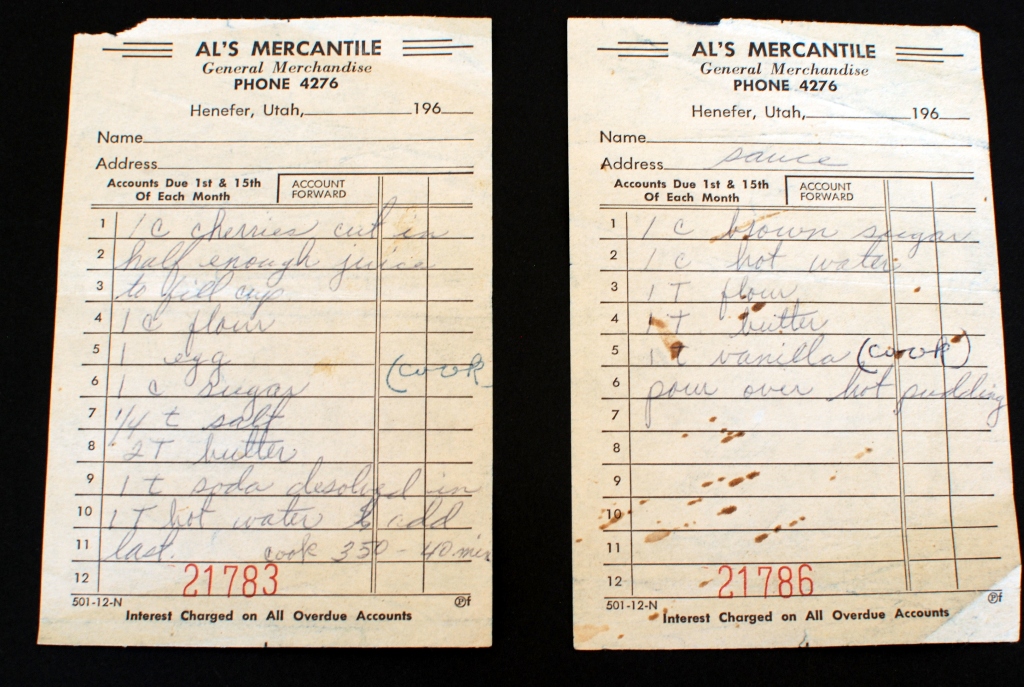 AL'S MERCANTILE
General Merchandise
PHONE 4276
Henefer, Utah, 196
Name
Address
Accounts Due 1st & 15th
Of Each Month
ACCOUNT
FORWARD
1 1 c cherries cut in
2 half enough juice
3 to fill cup
4 1 c flour
5 1 egg
6 1 c sugar (cook
7 1/4 t salt
8 2T butter
9 1 t soda desolved in
10 1 T hot water & add
11 last. cook 350 - 40 min
12 21783
501-12-N
Interest Charged on All Overdue Accounts
AL'S MERCANTILE
General Merchandise
PHONE 4276
Henefer, Utah, 196
Name
Address sauce
Accounts Due 1st & 15th
Of Each Month
ACCOUNT
FORWARD
1 1 c brown sugar
2 1 c hot water
3 1 T flour
4 1 T butter
5 1 t vanilla (cook)
6 pour over hot pudding
7
8
9
10
11
12 21786
501-12-N
Interest Charged on All Overdue Accounts